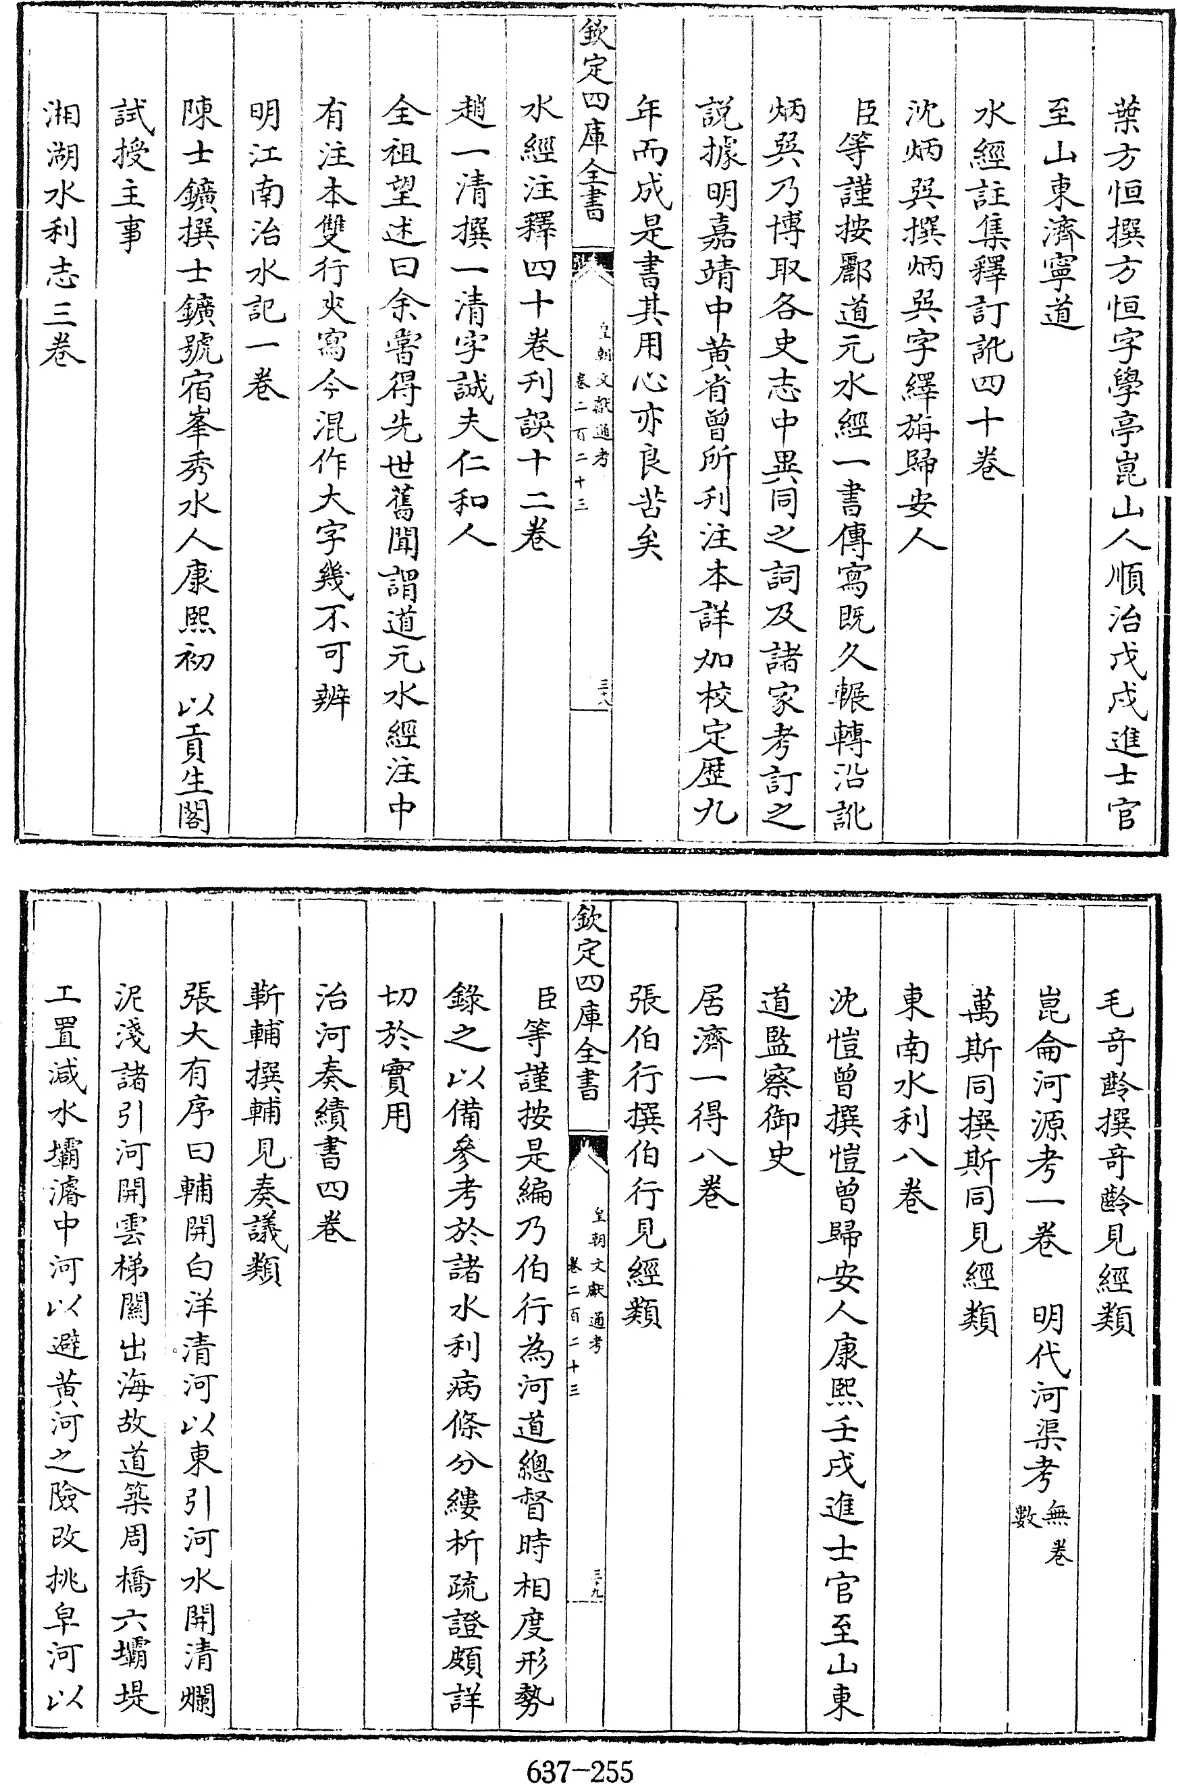 葉方恒撰方恒字學亭崑山人順治戊戌進士官
至山東濟寧道
水經註集釋訂訛四十卷
沈炳巽撰炳巽字繹旃歸安人
臣等謹按酈道元水經一書傳寫既久輾轉沿訛
炳巽乃博取各史志中異同之詞及諸家考訂之
說據明嘉靖中黄省曾所刋注本詳加校定歴九
年而成是書其用心亦良苦矣
欽定四庫全書
皇朝文獻通考
卷二百二十三
三十八
水經注釋四十卷刋誤十二卷
趙一清撰一清字誠夫仁和人
全祖望述曰余嘗得先世舊聞謂道元水經注中
有注本雙行夾寫今混作大字幾不可辨
明江南治水記一卷
陳士鑛撰士鑛號宿峯秀水人康熙初以貢生閣
試授主事
湘湖水利志三卷
毛奇齡撰奇齡見經類
崑侖河源考一卷 明代河渠考無卷數
萬斯同撰斯同見經類
東南水利八卷
沈愷曾撰愷曾歸安人康熙壬戌進士官至山東
道監察御史
居濟一得八卷
張伯行撰伯行見經類
欽定四庫全書
皇朝文獻通考
卷二百二十三
三十九
臣等謹按是編乃伯行為河道總督時相度形勢
錄之以備參考於諸水利病條分縷析疏證頗詳
切於實用
治河奏績書四卷
靳輔撰輔見奏議類
張大有序曰輔開白洋清河以東引河水開清爛
泥淺諸引河開雲梯關出海故道築周橋六壩堤
工置減水壩濬中河以避黄河之險改挑皁河以
637-255